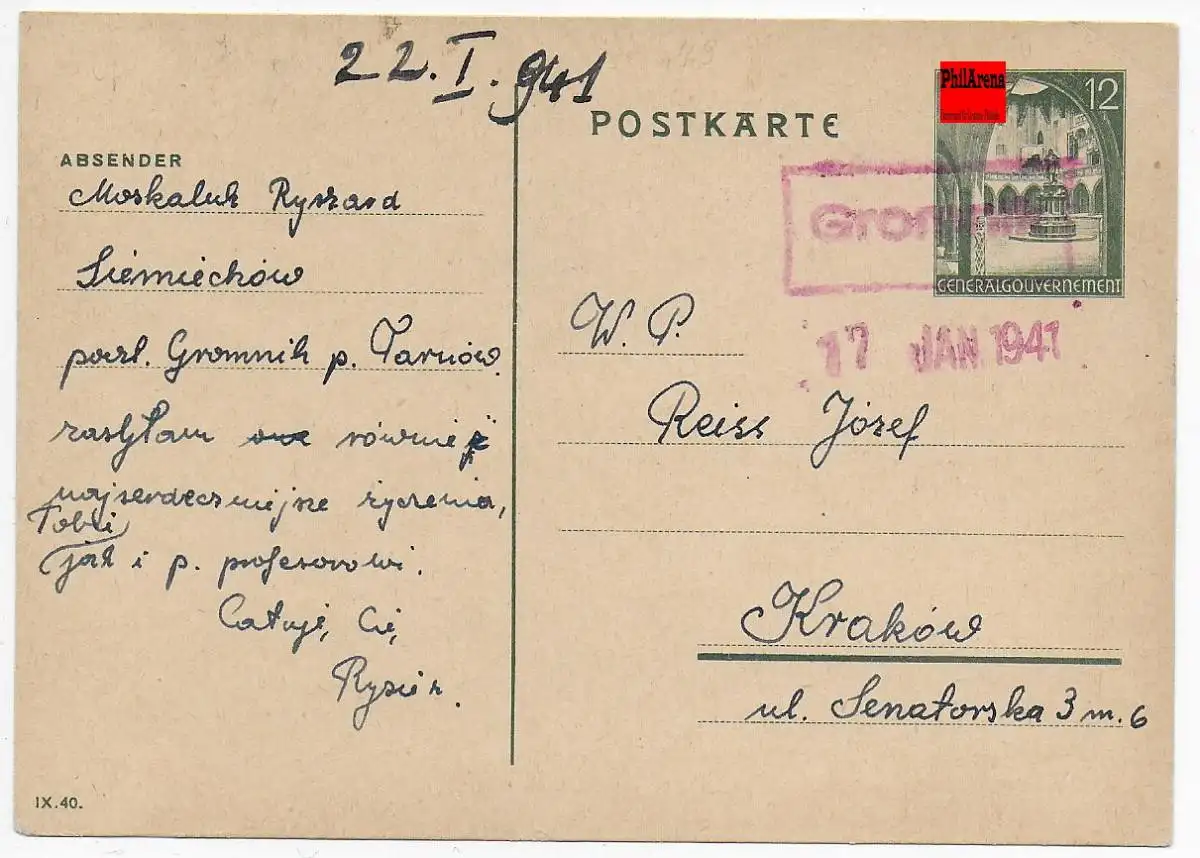 22.I.941
POSTKARTE
PhilArena
12
GENERALGOUVERNEMENT
17 JAN. 1941
ABSENDER
Moskaluk Ryszard
Siemiechów
poczt. Gromnik p. Tarnów.
zasyłam równie
najserdeczniejsze życzenia,
Tobie
jak i p. profesorowi.
Całuję Cię,
Rysiek.
W. P.
Reiss Józef
Kraków
ul. Senatorska 3 m. 6
IX.40.